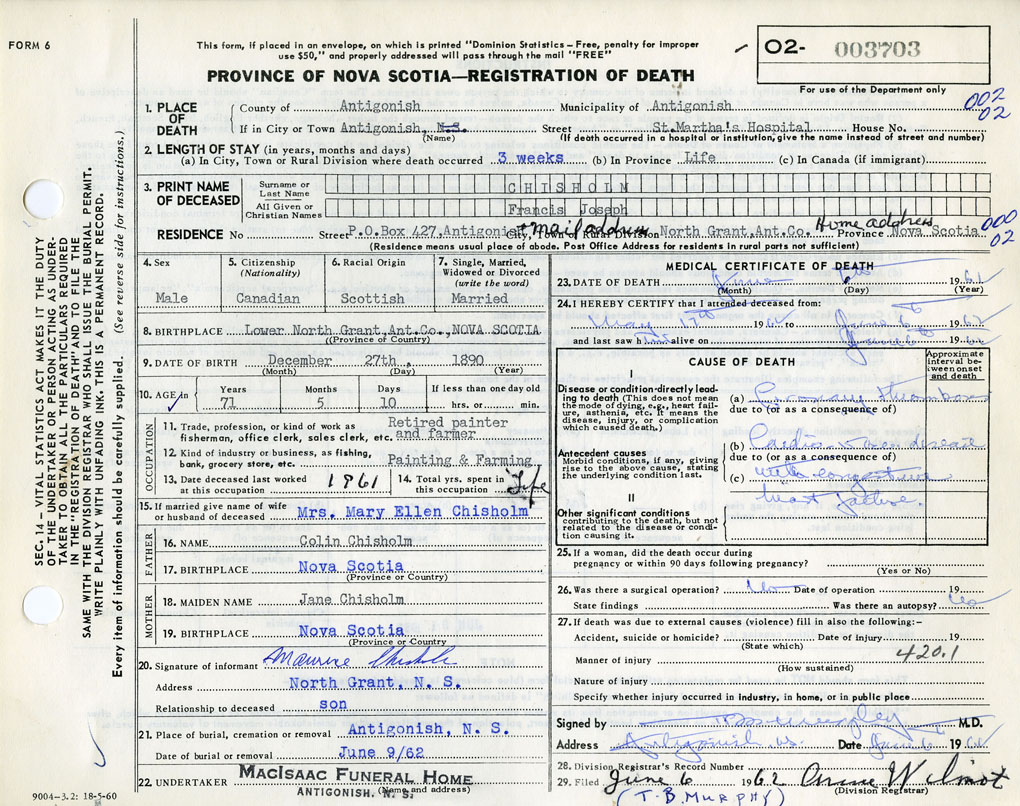 FORM 6
This form, if placed in an envelope, on which is printed "Dominion Statistics – Free, penalty for improper
use $50," and properly addressed will pass through the mail "FREE"
PROVINCE OF NOVA SCOTIA—REGISTRATION OF DEATH
O2- 003703
For use of the Department only
002
02
1. PLACE OF DEATH { County of Antigonish Municipality of Antigonish
If in City or Town Antigonish, N.S. Street St.Martha's Hospital House No.
(Name) (If death occurred in a hospital or institution, give the name instead of street and number)
2. LENGTH OF STAY (in years, months and days)
(a) In City, Town or Rural Division where death occurred 3 weeks (b) In Province Life (c) In Canada (if immigrant)
3. PRINT NAME OF DECEASED
Surname or Last Name CHISHOLM
All Given or Christian Names Francis Joseph
RESIDENCE No Street P.O.Box 427,Antigonish mail address City, Town or Rural Division North Grant,Ant.Co. Home address Province Nova Scotia
000
02
(Residence means usual place of abode. Post Office Address for residents in rural parts not sufficient)
4. Sex Male
5. Citizenship (Nationality) Canadian
6. Racial Origin Scottish
7. Single, Married, Widowed or Divorced (write the word) Married
8. BIRTHPLACE Lower North Grant,Ant.Co.,NOVA SCOTIA
(Province or Country)
9. DATE OF BIRTH December 27th, 1890
(Month) (Day) (Year)
10. AGE in { Years 71 Months 5 Days 10 If less than one day old hrs. or min.
OCCUPATION
11. Trade, profession, or kind of work as fisherman, office clerk, sales clerk, etc. Retired painter and farmer
12. Kind of industry or business, as fishing, bank, grocery store, etc. Painting & Farming
13. Date deceased last worked at this occupation 1961
14. Total yrs. spent in this occupation Life
15. If married give name of wife or husband of deceased Mrs. Mary Ellen Chisholm
FATHER
16. NAME Colin Chisholm
17. BIRTHPLACE Nova Scotia
(Province or Country)
MOTHER
18. MAIDEN NAME Jane Chisholm
19. BIRTHPLACE Nova Scotia
(Province or Country)
20. Signature of informant Maurice Chisholm
Address North Grant, N. S.
Relationship to deceased son
21. Place of burial, cremation or removal Antigonish, N. S.
Date of burial or removal June 9/62
22. UNDERTAKER MacIsaac Funeral Home
(Name and address)
ANTIGONISH, N. S.
MEDICAL CERTIFICATE OF DEATH
23. DATE OF DEATH June 6 1961
(Month) (Day) (Year)
24. I HEREBY CERTIFY that I attended deceased from:
May 17th 1962 to June 6th 1962
and last saw him alive on June 6th 1962
CAUSE OF DEATH
Approximate interval between onset and death
I
Disease or condition directly leading to death (This does not mean the mode of dying, e.g., heart failure, asthenia, etc. It means the disease, injury, or complication which caused death.)
(a) Coronary thrombosis
due to (or as a consequence of)
Antecedent causes
Morbid conditions, if any, giving rise to the above cause, stating the underlying condition last.
(b) Cardio disease
due to (or as a consequence of)
(c) with congestive
heart failure.
II
Other significant conditions
contributing to the death, but not related to the disease or condition causing it.
25. If a woman, did the death occur during pregnancy or within 90 days following pregnancy?
(Yes or No)
26. Was there a surgical operation? No Date of operation 19
State findings Was there an autopsy? No
27. If death was due to external causes (violence) fill in also the following:-
Accident, suicide or homicide? Date of injury 19
(State which)
420.1
Manner of injury
(How sustained)
Nature of injury
Specify whether injury occurred in industry, in home, or in public place
Signed by M.D.
Address Antigonish NS. Date June 6 196
28. Division Registrar's Record Number
29. Filed June 6 1962 Anne Wilmot
(Division Registrar)
(T. B. MURPHY)
SEC. 14 – VITAL STATISTICS ACT MAKES IT THE DUTY
OF THE UNDERTAKER OR PERSON ACTING AS UNDER-
TAKER TO OBTAIN ALL THE PARTICULARS REQUIRED
IN THE "REGISTRATION OF DEATH" AND TO FILE THE
SAME WITH THE DIVISION REGISTRAR WHO SHALL ISSUE THE BURIAL PERMIT.
WRITE PLAINLY WITH UNFADING INK. THIS IS A PERMANENT RECORD.
Every item of information should be carefully supplied. (See reverse side for instructions.)
9004-3.2: 18-5-60